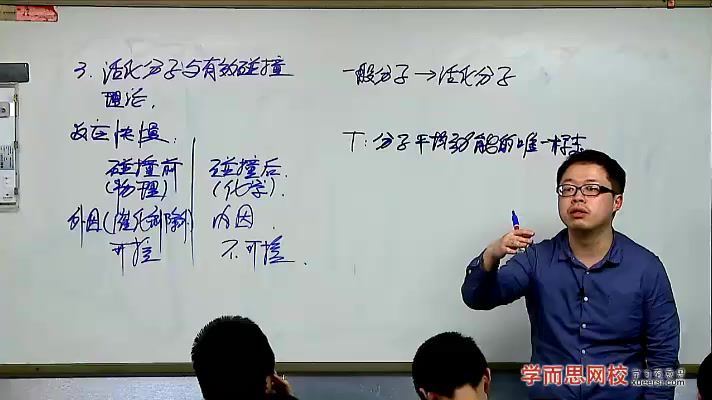 3. 活化分子与有效碰撞
理论.
反应快慢.
碰撞前
(物理)
外因(催化剂除外)
可控
碰撞后
(化学).
内因
不可控.
一般分子→活化分子
T: 分子平均动能的唯一标志
学而思网校
学习有意思
xueersi.com